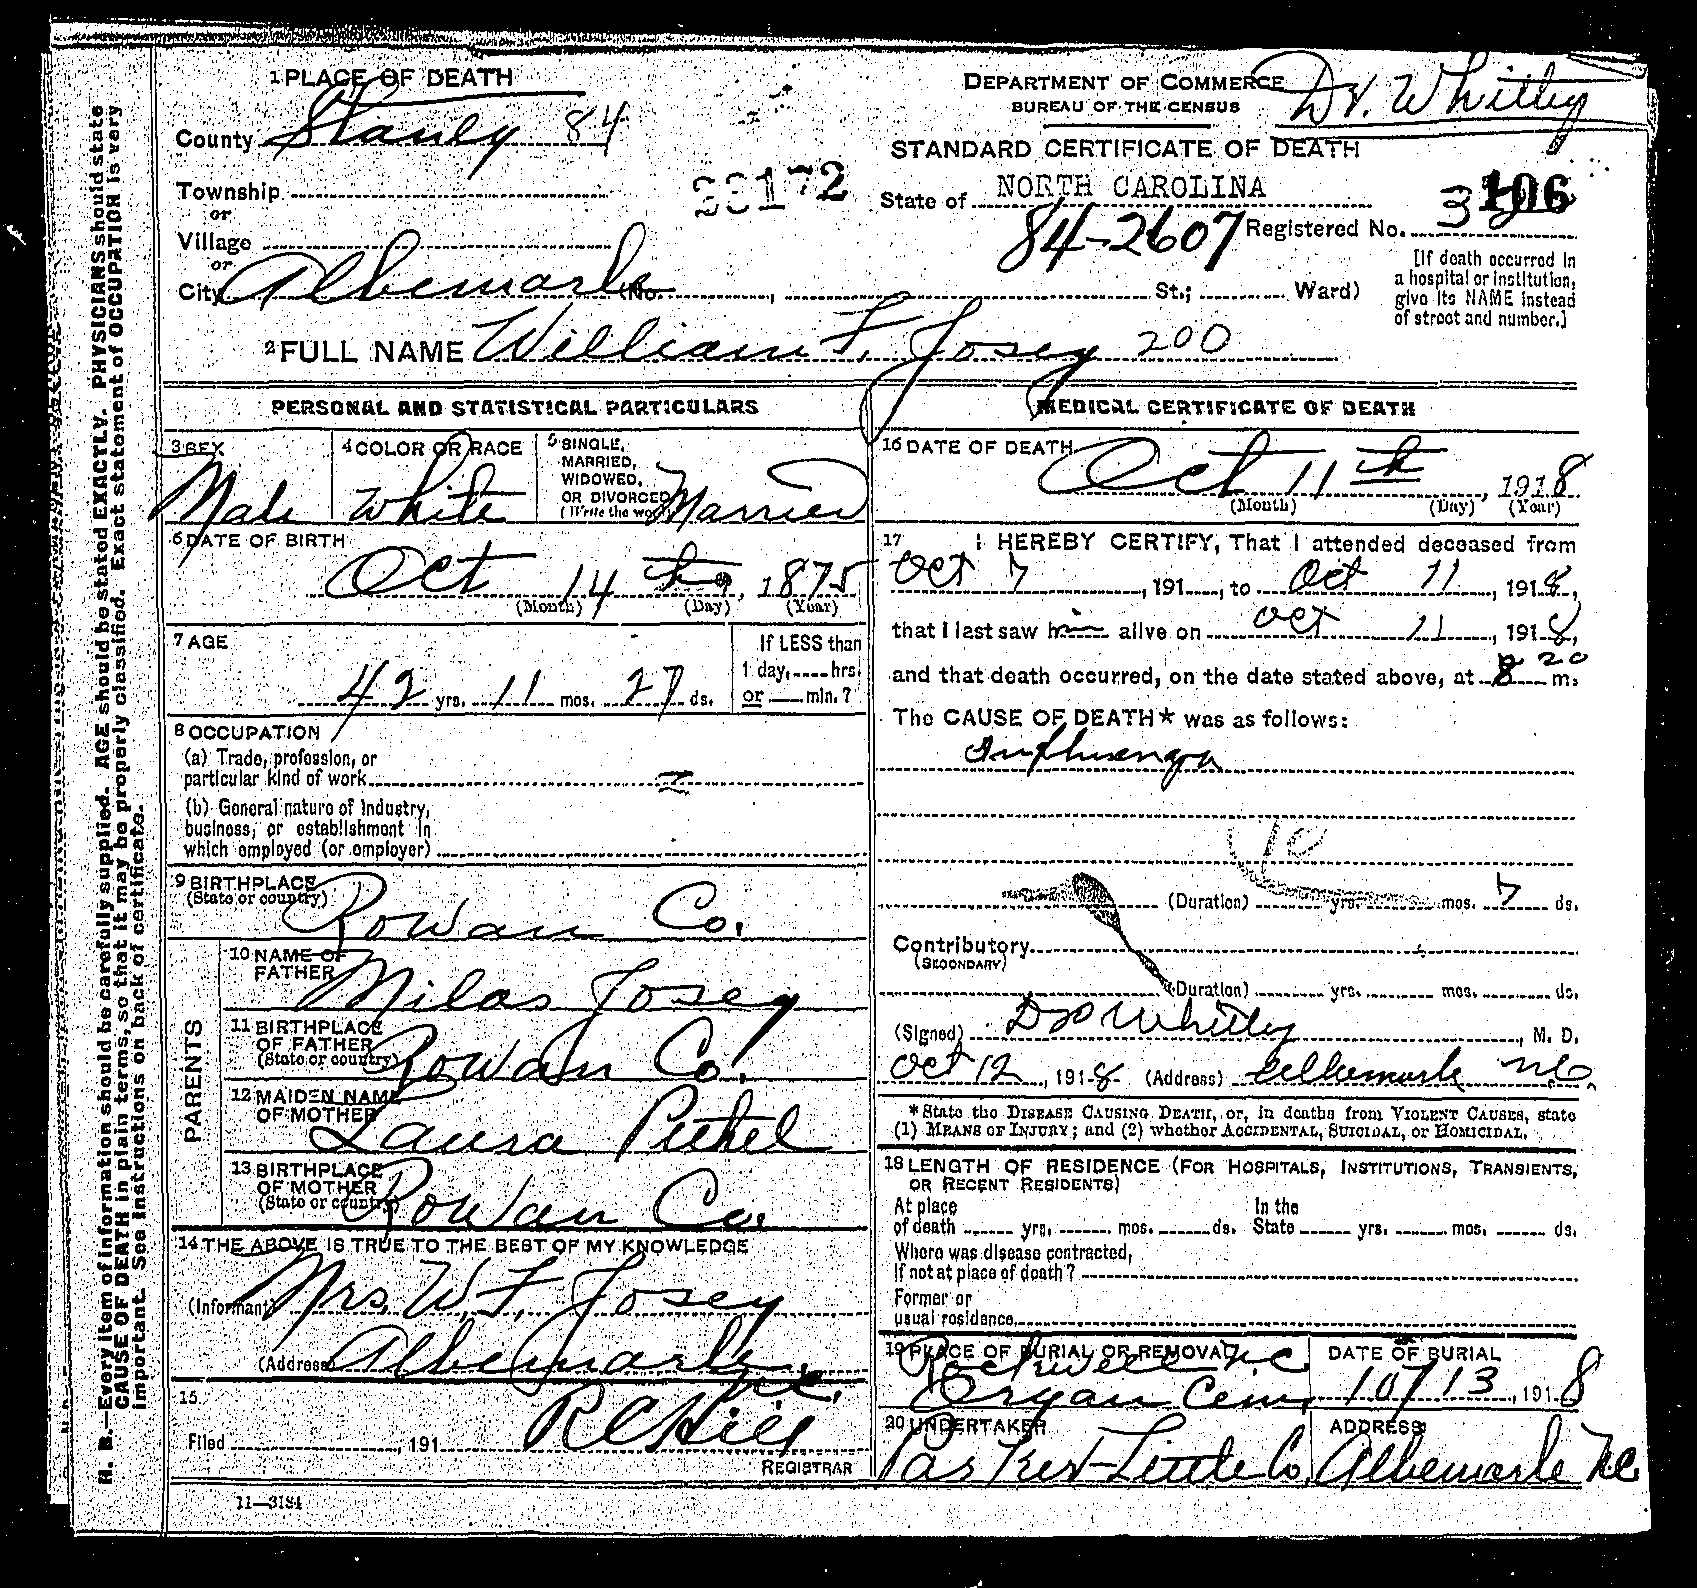 1 PLACE OF DEATH
County Stanly 84
Township
or
Village
or
City Albemarle (No. , St.; Ward)
2 FULL NAME William F. Josey 200
DEPARTMENT OF COMMERCE Dr. Whitley
BUREAU OF THE CENSUS
STANDARD CERTIFICATE OF DEATH
State of NORTH CAROLINA
84-2607 Registered No. 106
[If death occurred in
a hospital or institution,
give its NAME instead
of street and number.]
PERSONAL AND STATISTICAL PARTICULARS
3 SEX
Male
4 COLOR OR RACE
White
5 SINGLE,
MARRIED,
WIDOWED,
OR DIVORCED
(Write the word) Married
6 DATE OF BIRTH
Oct 14 th, 1875
(Month) (Day) (Year)
7 AGE
42 yrs. 11 mos. 27 ds.
If LESS than
1 day, hrs.
or min.?
8 OCCUPATION
(a) Trade, profession, or
particular kind of work
(b) General nature of Industry,
business, or establishment in
which employed (or employer)
9 BIRTHPLACE
(State or country)
Rowan Co.
PARENTS
10 NAME OF
FATHER
Milas Josey
11 BIRTHPLACE
OF FATHER
(State or country)
Rowan Co.
12 MAIDEN NAME
OF MOTHER
Laura Pethel
13 BIRTHPLACE
OF MOTHER
(State or country)
Rowan Co.
14 THE ABOVE IS TRUE TO THE BEST OF MY KNOWLEDGE
(Informant) Mrs. W. F. Josey
(Address) Albemarle, N.C.
15
Filed , 191 R C Hill
REGISTRAR
11—3184
MEDICAL CERTIFICATE OF DEATH
16 DATE OF DEATH
Oct 11 th, 1918
(Month) (Day) (Year)
17 I HEREBY CERTIFY, That I attended deceased from
Oct 7, 191 , to Oct 11, 1918,
that I last saw him alive on Oct 11, 1918,
and that death occurred, on the date stated above, at 8 20 m.
The CAUSE OF DEATH* was as follows:
Influenza
10
(Duration) yrs. mos. 7 ds.
Contributory
(SECONDARY)
(Duration) yrs. mos. ds.
(Signed) Whitley, M. D.
Oct 12, 1918 (Address) Albemarle N.C.
*State the DISEASE CAUSING DEATH, or, in deaths from VIOLENT CAUSES, state
(1) MEANS OF INJURY; and (2) whether ACCIDENTAL, SUICIDAL, or HOMICIDAL.
18 LENGTH OF RESIDENCE (FOR HOSPITALS, INSTITUTIONS, TRANSIENTS,
OR RECENT RESIDENTS)
At place
of death yrs. mos. ds.
In the
State yrs. mos. ds.
Where was disease contracted,
If not at place of death?
Former or
usual residence
19 PLACE OF BURIAL OR REMOVAL
Rockwell NC
Organ Cem.
DATE OF BURIAL
10/13, 1918
20 UNDERTAKER
Parker-Little Co.
ADDRESS
Albemarle N.C.
N. B.—Every item of information should be carefully supplied. AGE should be stated EXACTLY. PHYSICIANS should state
CAUSE OF DEATH in plain terms, so that it may be properly classified. Exact statement of OCCUPATION is very
important. See instructions on back of certificate.